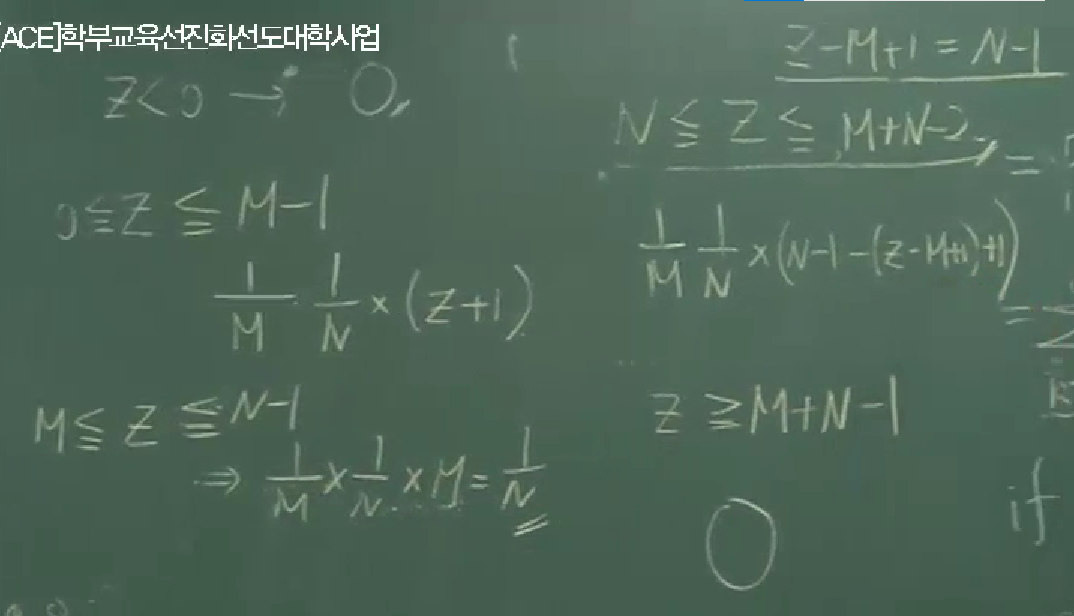 [ACE]학부교육선진화선도대학사업
Z<0 → 0,
0≦Z≦M-1
1/M 1/N ×(Z+1)
M≦Z≦N-1
⇒ 1/M × 1/N × M = 1/N
Z-M+1=N-1
N≦Z≦M+N-2 =
1/M 1/N ×(N-1-(Z-M+1)+1)
Z≧M+N-1
0
if